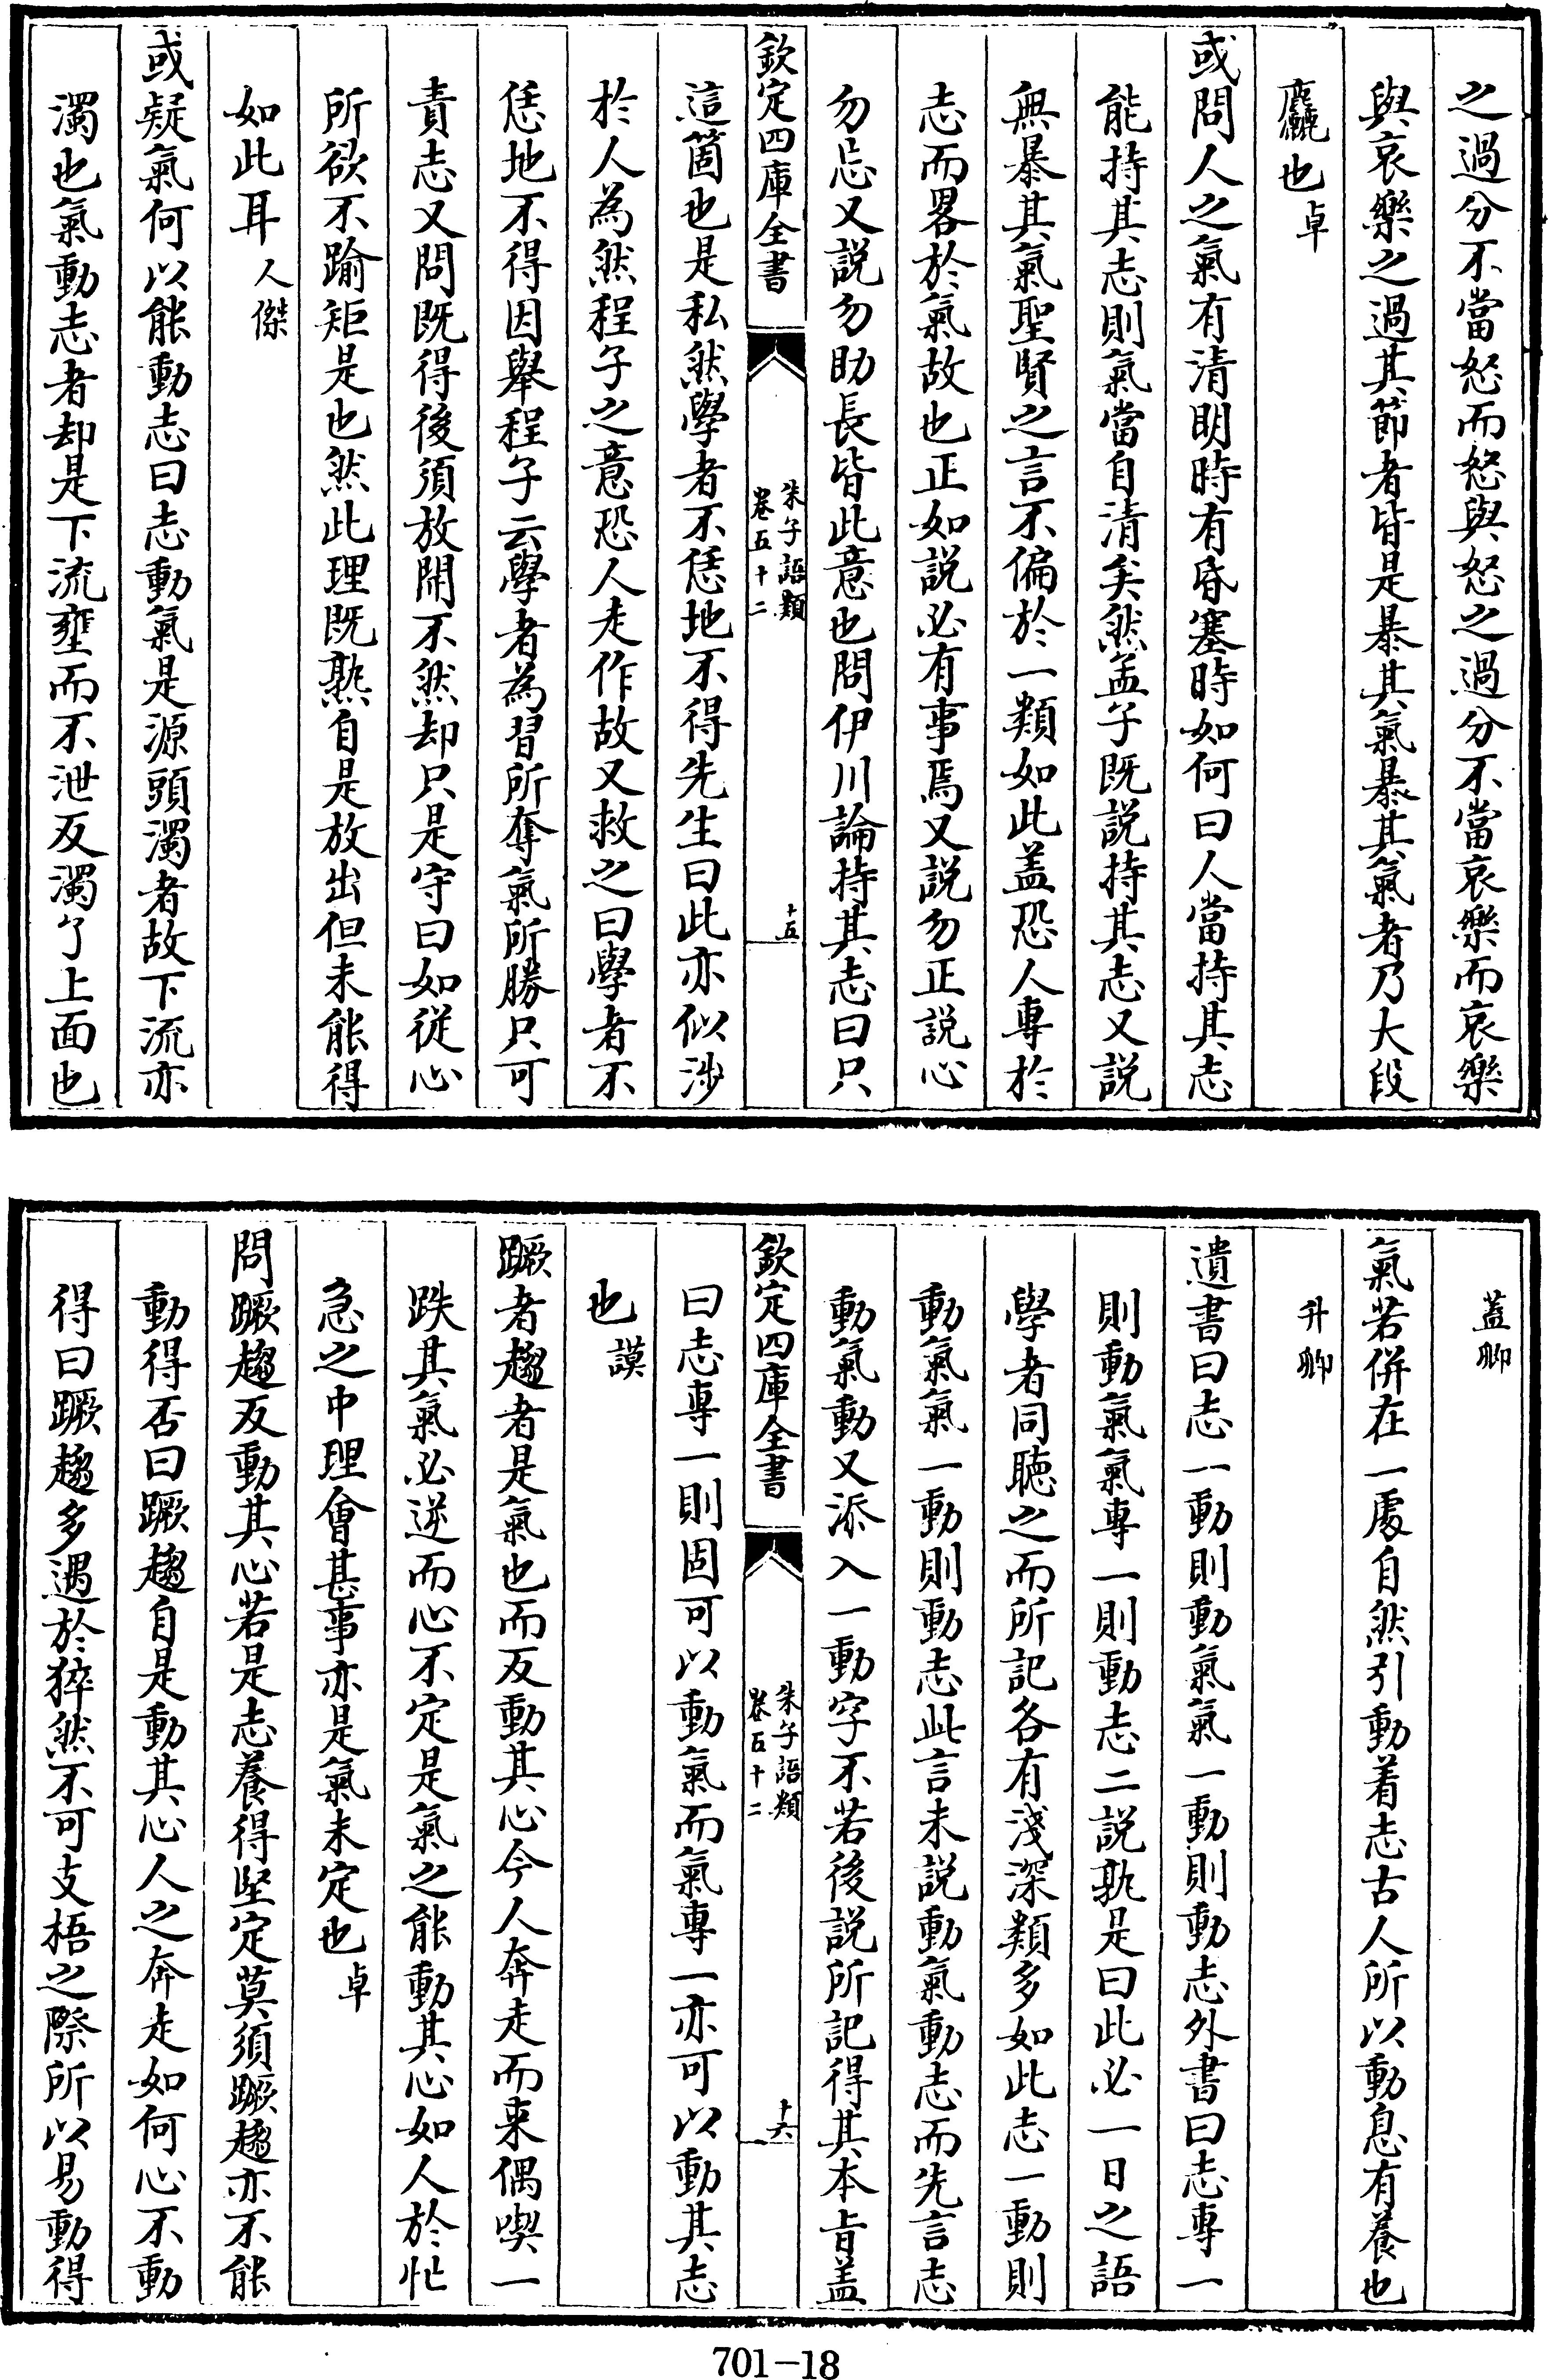 之過分不當怒而怒與怒之過分不當哀樂而哀樂
與哀樂之過其節者皆是暴其氣暴其氣者乃大段
麤也卓
或問人之氣有清明時有昏塞時如何曰人當持其志
能持其志則氣當自清矣然孟子既説持其志又説
無暴其氣聖賢之言不偏於一類如此盖恐人專於
志而畧於氣故也正如説必有事焉又説勿正説心
勿忘又説勿助長皆此意也問伊川論持其志曰只
欽定四庫全書
朱子語類
卷五十二
十五
這箇也是私然學者不恁地不得先生曰此亦似涉
於人為然程子之意恐人走作故又救之曰學者不
恁地不得因舉程子云學者為習所奪氣所勝只可
責志又問既得後須放開不然却只是守曰如從心
所欲不踰矩是也然此理既熟自是放出但未能得
如此耳人傑
或疑氣何以能動志曰志動氣是源頭濁者故下流亦
濁也氣動志者却是下流壅而不泄反濁了上面也
蓋卿
氣若併在一處自然引動着志古人所以動息有養也
升卿
遺書曰志一動則動氣氣一動則動志外書曰志專一
則動氣氣專一則動志二説孰是曰此必一日之語
學者同聴之而所記各有淺深類多如此志一動則
動氣氣一動則動志此言未説動氣動志而先言志
動氣動又添入一動字不若後説所記得其本旨盖
欽定四庫全書
朱子語類
卷五十二
十六
曰志專一則固可以動氣而氣專一亦可以動其志
也謨
蹶者趨者是氣也而反動其心今人奔走而来偶喫一
跌其氣必逆而心不定是氣之能動其心如人於忙
急之中理會甚事亦是氣未定也卓
問蹶趨反動其心若是志養得堅定莫須蹶趨亦不能
動得否曰蹶趨自是動其心人之奔走如何心不動
得曰蹶趨多遇於猝然不可支梧之際所以易動得
701-18